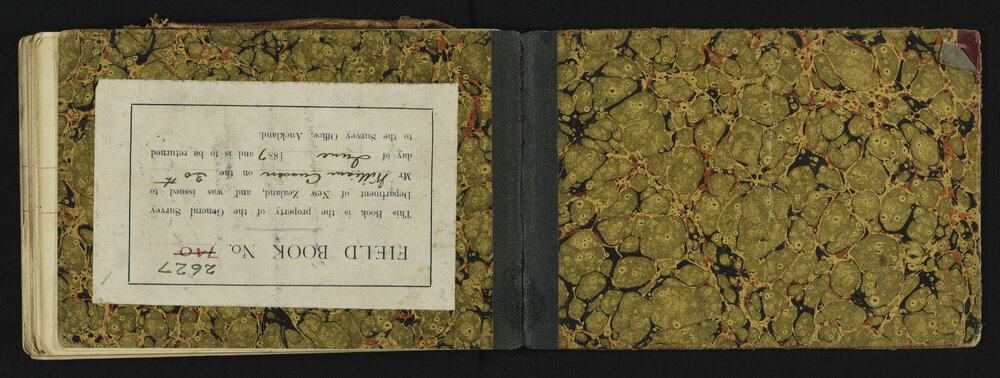 2627
FIELD BOOK No. 710
This Book is the property of the General Survey
Department of New Zealand, and was issued to
Mr William Cussen on the 30th
day of June 1887 and is to be returned
to the Survey Office, Auckland.